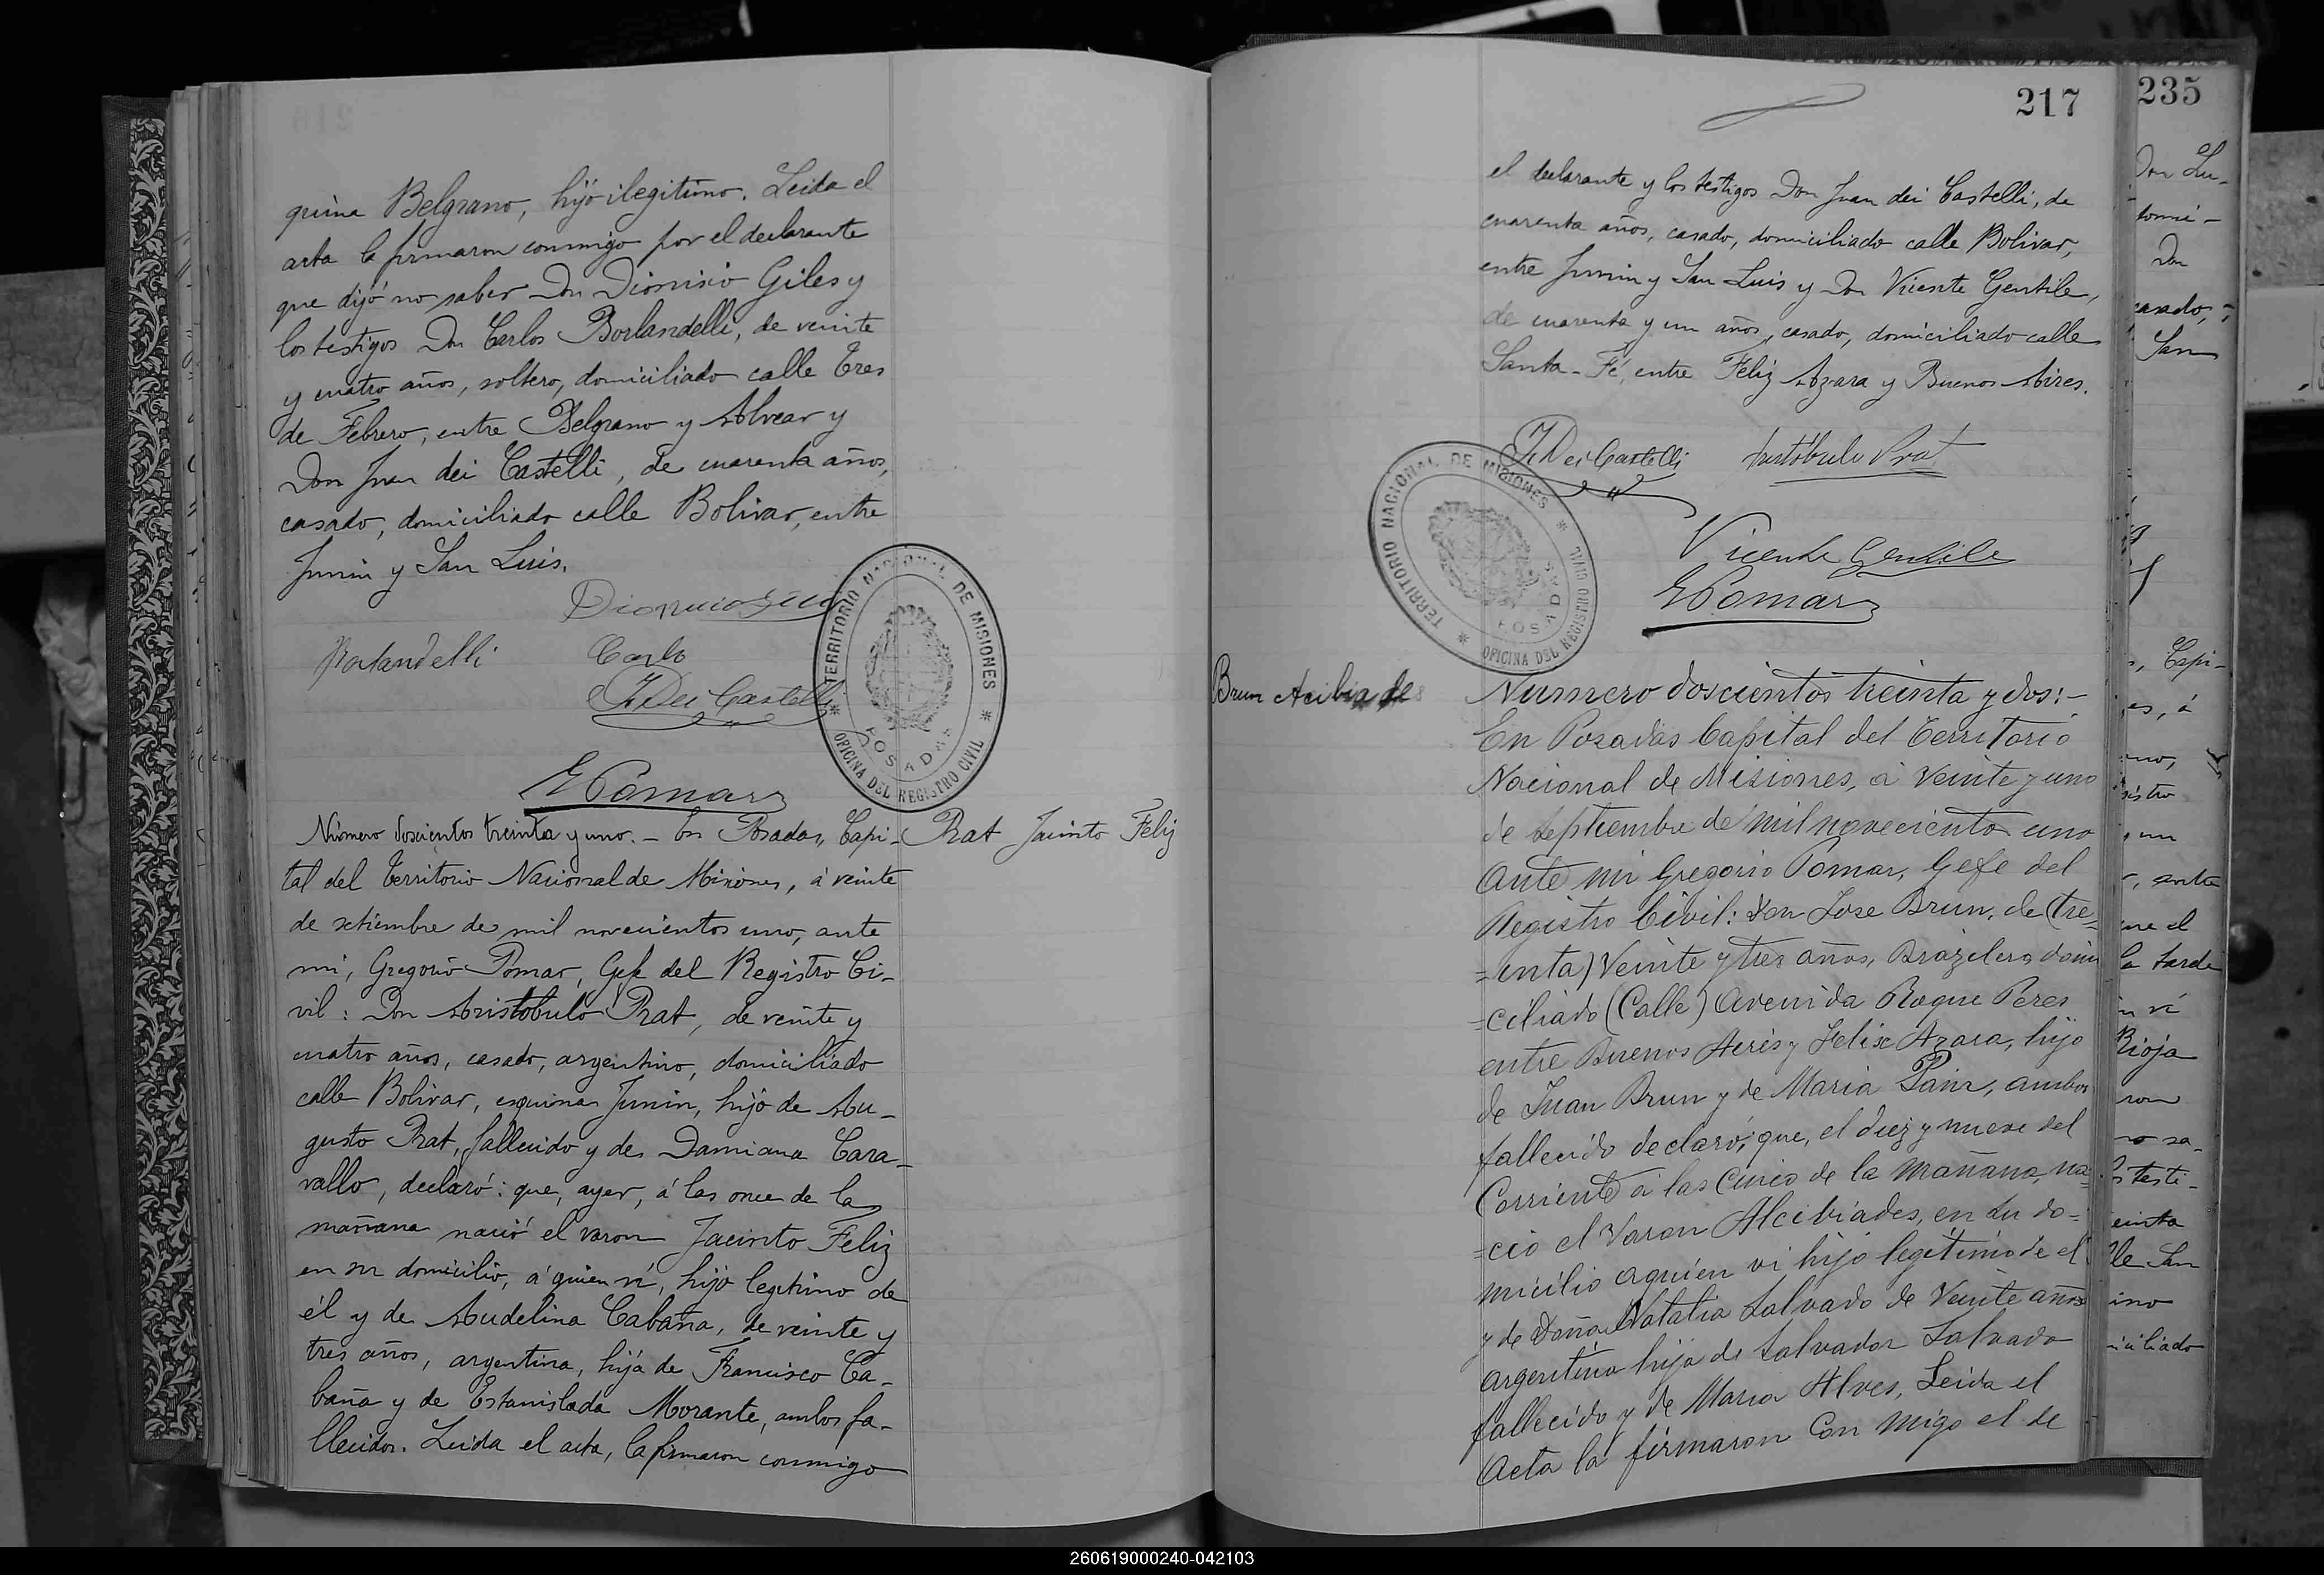 quina Belgrano, hijo ilegitimo. Leida el
acta la firmaron conmigo por el declarante
que dijó no saber Don Dionisio Giles y
los testigos Don Carlos Borlandelli, de veinte
y cuatro años, soltero, domiciliado calle Tres
de Febrero, entre Belgrano y Alvear y
Don Juan dei Castelli, de cuarenta años,
casado, domiciliado calle Bolivar, entre
Junin y San Luis.
Dionicio
Borlandelli Carlo
J Dei Castelli
TERRITORIO NACIONAL DE MISIONES
POSADAS
OFICINA DEL REGISTRO CIVIL
G Pomar
Prat Jacinto Feliz
Número doscientos treinta y uno. – En Posadas, Capi-
tal del Territorio Nacional de Misiones, á veinte
de setiembre de mil novecientos uno, ante
mi, Gregorio Pomar, Gefe del Registro Ci-
vil: Don Aristobulo Prat, de veinte y
cuatro años, casado, argentino, domiciliado
calle Bolivar, esquina Junin, hijo de Au-
gusto Prat, fallecido y de Damiana Cara-
vallo, declaró: que, ayer, á las once de la
mañana nació el varon Jacinto Feliz
en su domicilio, á quien ví, hijo legitimo de
él y de Audelina Cabaña, de veinte y
tres años, argentina, hija de Francisco Ca-
baña y de Estanislada Morante, ambos fa-
llecidos. Leida el acta, la firmaron conmigo
217
el declarante y los testigos Don Juan dei Castelli, de
cuarenta años, casado, domiciliado calle Bolivar,
entre Junin y San Luis y Don Vicente Gentile,
de cuarenta y un años, casado, domiciliado calle
Santa-Fé, entre Feliz Azara y Buenos Aires.
J Dei Castelli Aristóbulo Prat
TERRITORIO NACIONAL DE MISIONES
POSADAS
OFICINA DEL REGISTRO CIVIL
Vicente Gentile
G Pomar
Brun Acibiades
Numero doscientos treinta y dos:-
En Posadas Capital del Territorio
Nacional de Misiones, á Veinte y uno
de Septiembre de mil novecientos uno
Ante mi Gregorio Pomar, Gefe del
Registro Civil: Don Jose Brun, de (tre=
=inta) Veinte y tres años, Brazilero, domi
=ciliado (Calle) Avenida Roque Peres
entre Buenos Aeris y Felix Azara, hijo
de Juan Brun y de Maria Pair, ambos
fallecido declaró; que, el diez y nueve del
Corriente á las Cinco de la Mañana, na=
=cio el Varon Alcibiades, en Su do=
micilio aquien vi hijo legetimo de el
y de Doña Natalia Salvado de Veinte años
argentina hija de Salvador Salvado
fallecido y de Maria Alves, Leida el
Acta la firmaron Con migo el de
235
Don Lu-
domi-
Don
casado,
San
Capi-
es, á
uno,
istro
un
, ante
que el
la tarde
ví
Rioja
ron
no sa-
s testi-
einta
lle San
ino
iciliado
260619000240-042103